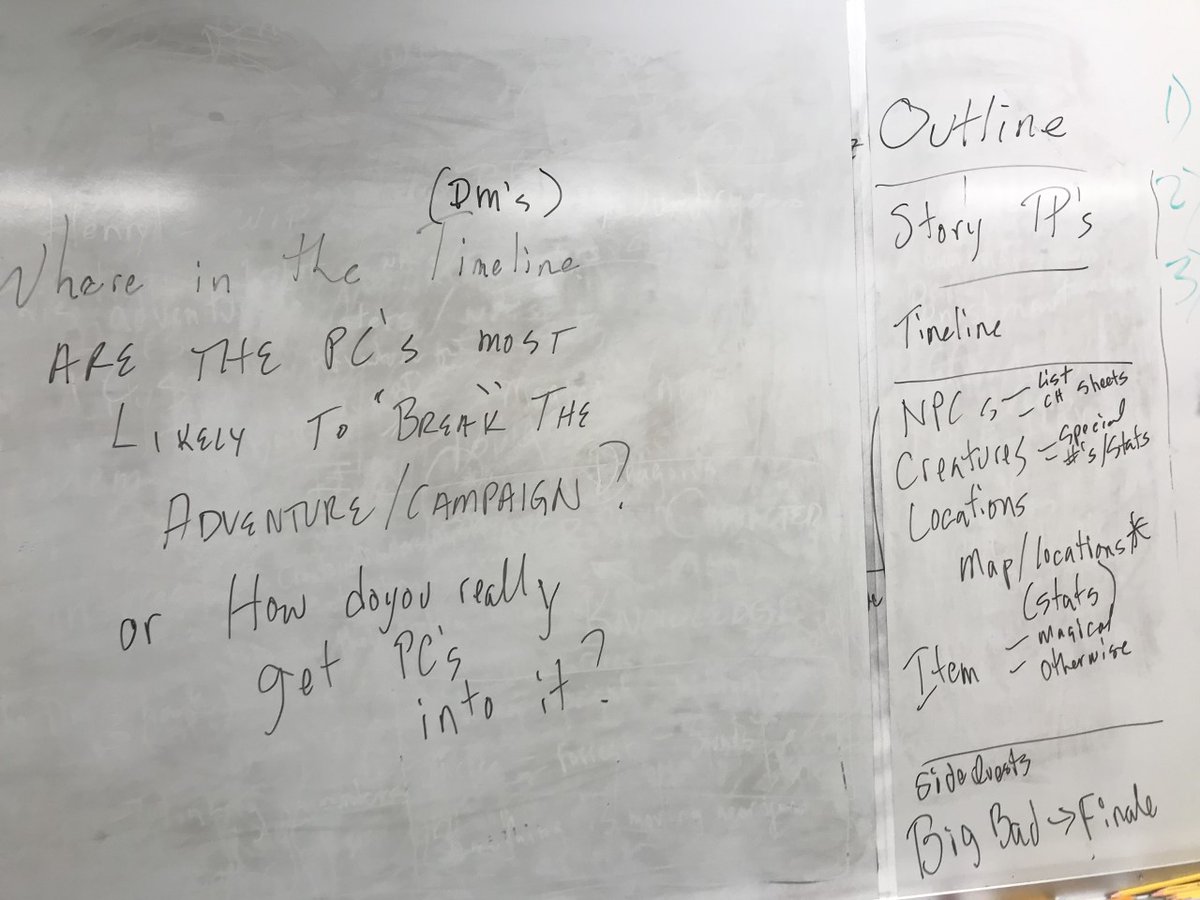 (DM's)
Where in the Timeline
ARE THE PC's MOST
LIKELY TO "BREAK" THE
ADVENTURE/CAMPAIGN?
or How do you really
get PC's
into it?
Outline
Story TP's
Timeline
NPCs - List
- CH sheets
Creatures - special
#'s/stats
Locations
Map/locations*
(stats)
Item - magical
- otherwise
Sidequests
Big Bad → Finale
1)
2)
3)